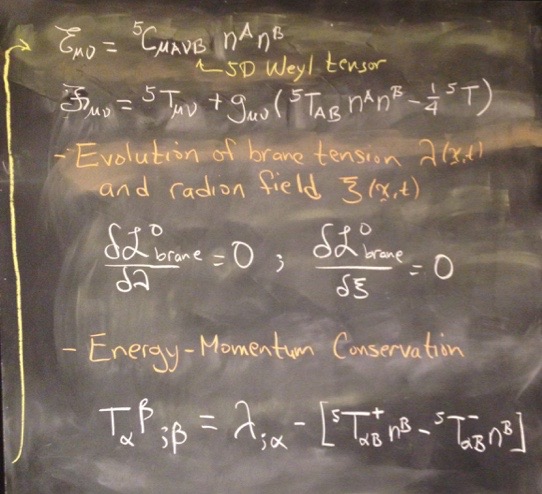 ℰ_μν = ⁵C_μAνB n^A n^B
5D Weyl tensor
ℱ_μν = ⁵T_μν + g_μν (⁵T_AB n^A n^B - 1/4 ⁵T)
- Evolution of brane tension λ(x,t)
and radion field ξ(x,t)
δℒ°_brane/δλ = 0 ; δℒ°_brane/δξ = 0
- Energy-Momentum Conservation
T_α^β_;β = λ_;α - [⁵T⁺_αB n^B - ⁵T⁻_αB n^B]